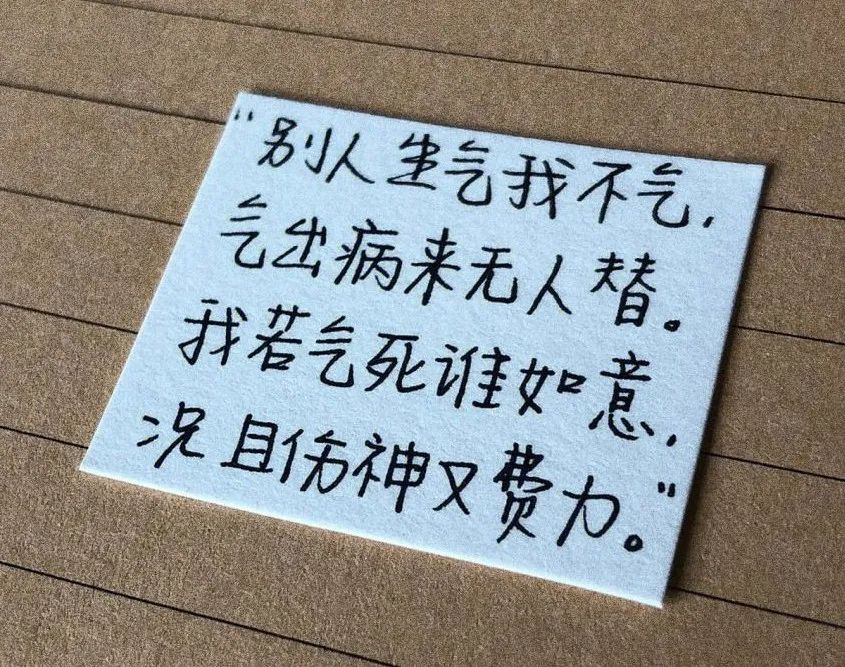 "别人生气我不气,
气出病来无人替。
我若气死谁如意,
况且伤神又费力。"